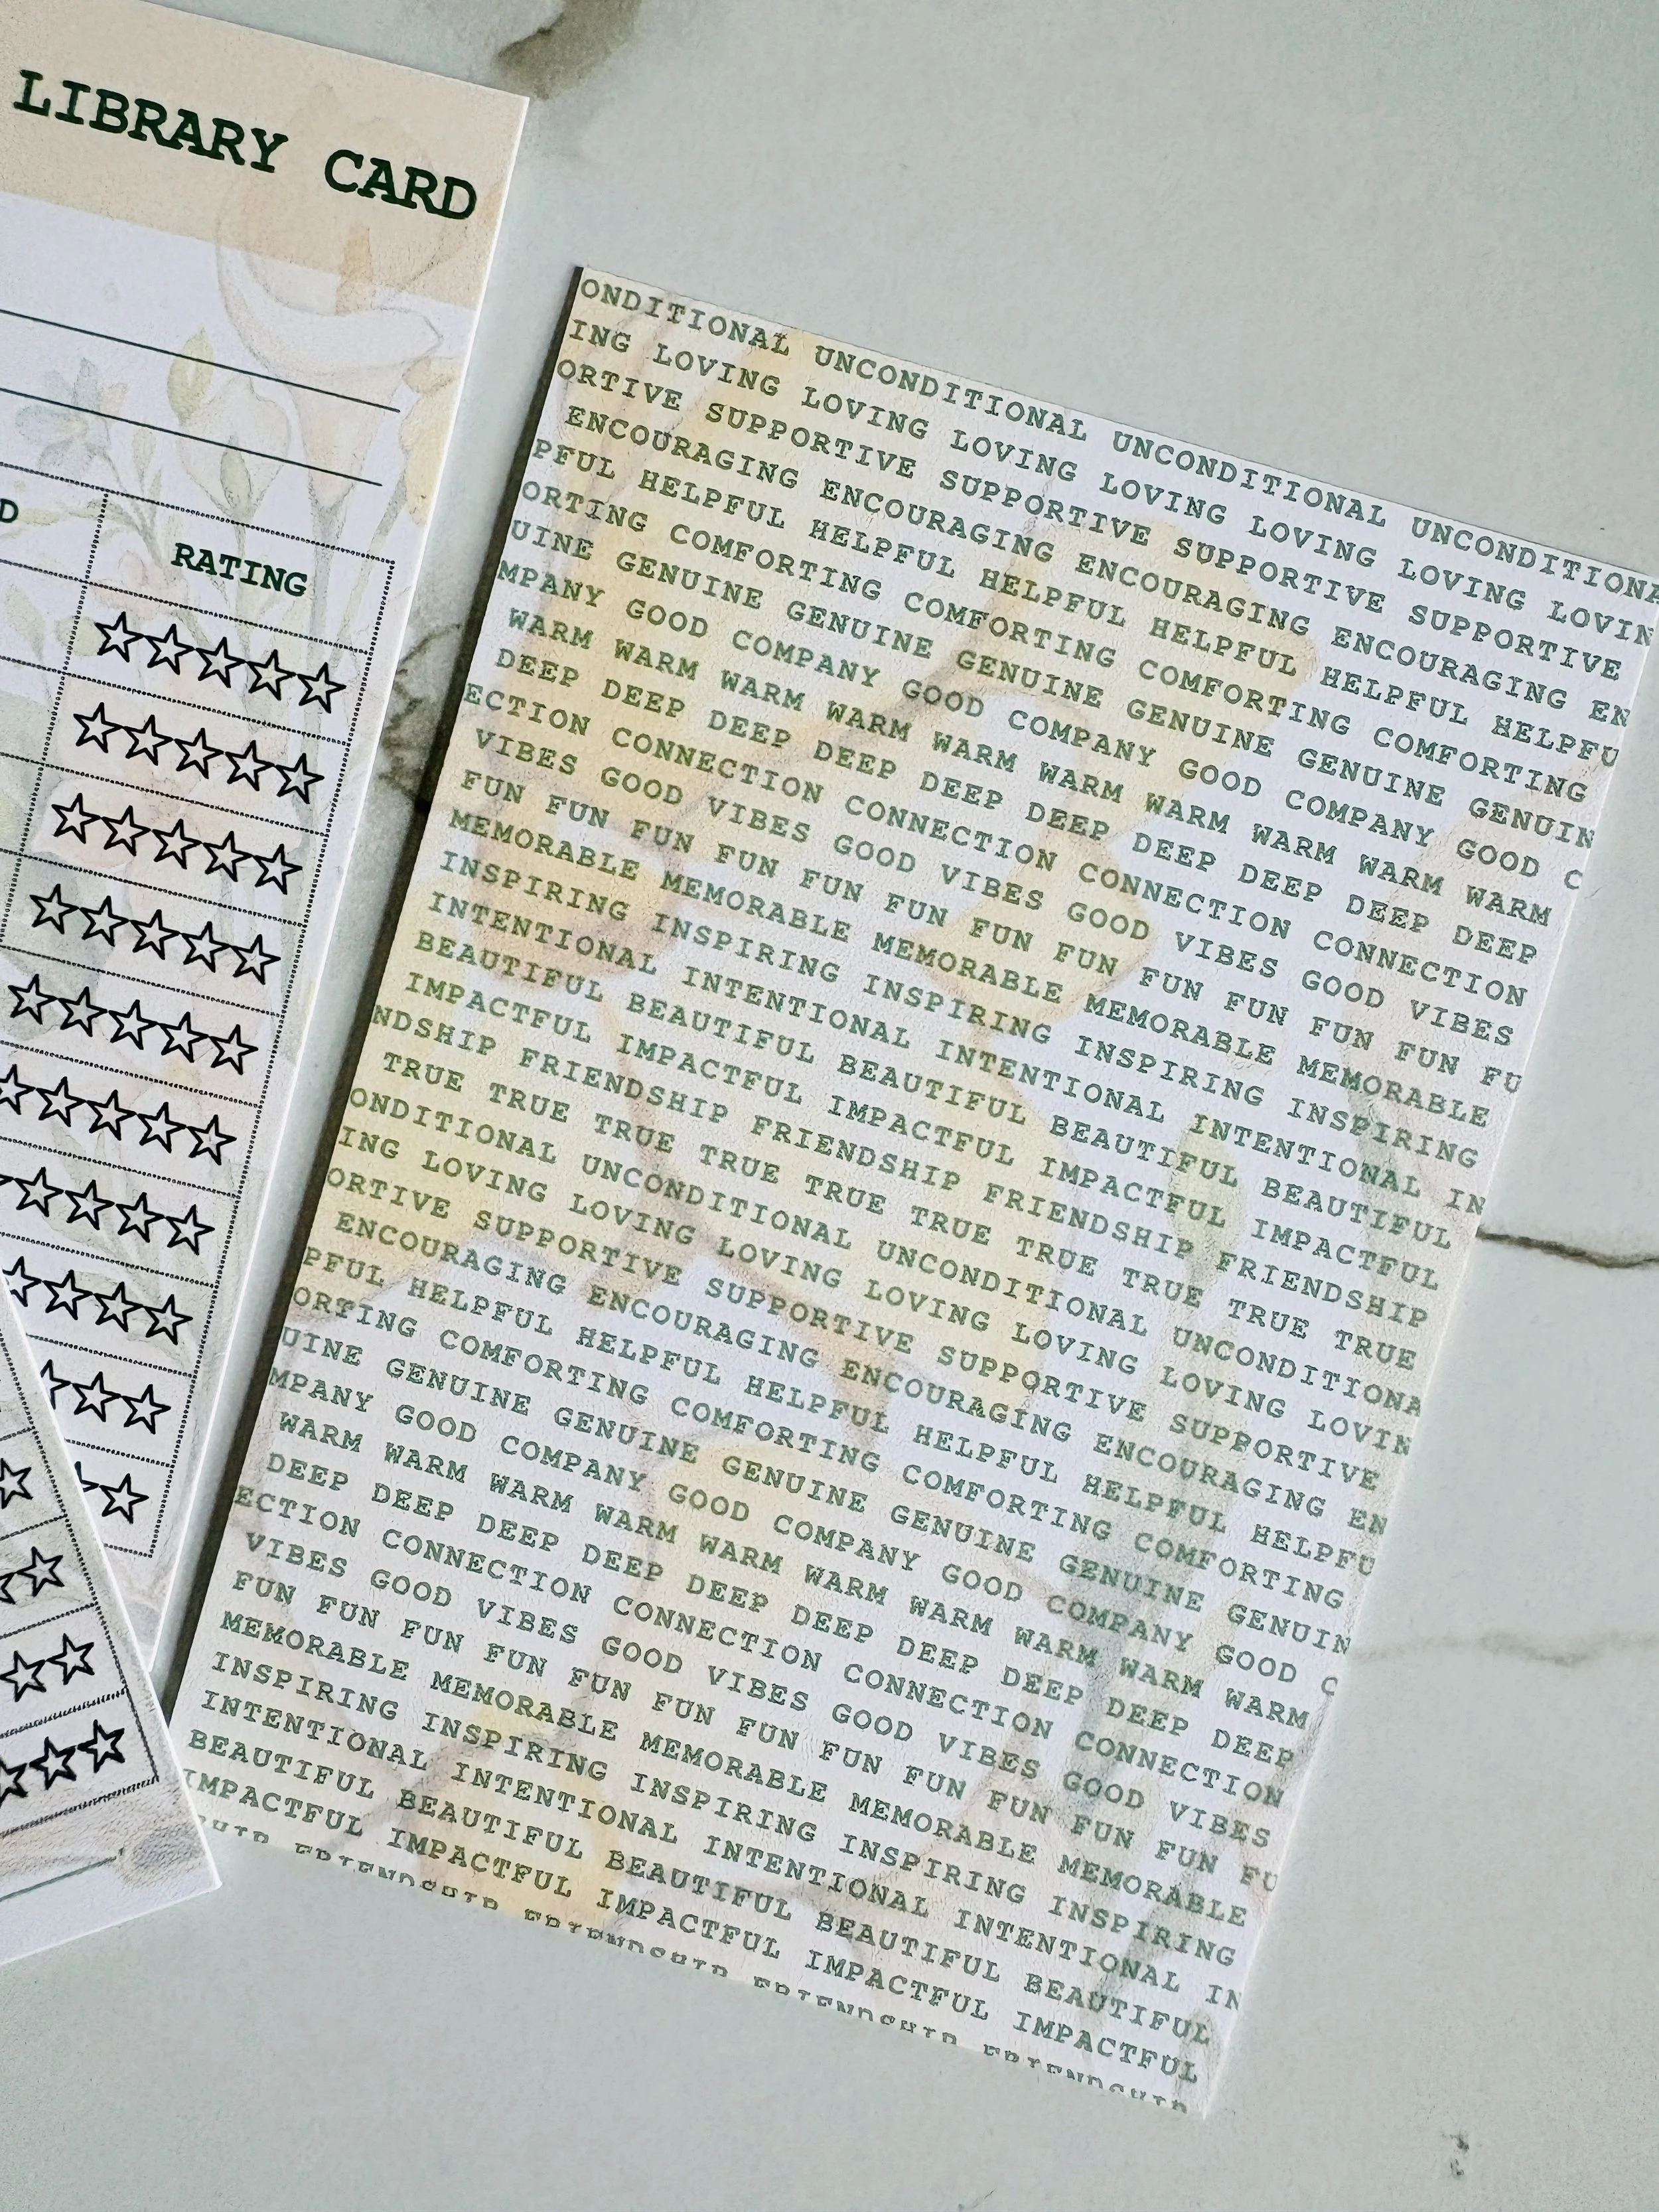 LIBRARY CARD
D
RATING
ONDITIONAL UNCONDITIONAL UNCONDITIONAL UNCONDITIONA
ING LOVING LOVING LOVING LOVING LOVING LOVING LOVIN
ORTIVE SUPPORTIVE SUPPORTIVE SUPPORTIVE SUPPORTIVE
ENCOURAGING ENCOURAGING ENCOURAGING ENCOURAGING EN
PFUL HELPFUL HELPFUL HELPFUL HELPFUL HELPFUL HELPFU
ORTING COMFORTING COMFORTING COMFORTING COMFORTING
UINE GENUINE GENUINE GENUINE GENUINE GENUINE GENUIN
MPANY GOOD COMPANY GOOD COMPANY GOOD COMPANY GOOD C
WARM WARM WARM WARM WARM WARM WARM WARM WARM WARM
DEEP DEEP DEEP DEEP DEEP DEEP DEEP DEEP DEEP DEEP
ECTION CONNECTION CONNECTION CONNECTION CONNECTION
VIBES GOOD VIBES GOOD VIBES GOOD VIBES GOOD VIBES
FUN FUN FUN FUN FUN FUN FUN FUN FUN FUN FUN FUN FU
MEMORABLE MEMORABLE MEMORABLE MEMORABLE MEMORABLE
INSPIRING INSPIRING INSPIRING INSPIRING INSPIRING
INTENTIONAL INTENTIONAL INTENTIONAL INTENTIONAL IN
BEAUTIFUL BEAUTIFUL BEAUTIFUL BEAUTIFUL BEAUTIFUL
IMPACTFUL IMPACTFUL IMPACTFUL IMPACTFUL IMPACTFUL
NDSHIP FRIENDSHIP FRIENDSHIP FRIENDSHIP FRIENDSHIP
TRUE TRUE TRUE TRUE TRUE TRUE TRUE TRUE TRUE TRUE
ONDITIONAL UNCONDITIONAL UNCONDITIONAL UNCONDITIONA
ING LOVING LOVING LOVING LOVING LOVING LOVING LOVIN
ORTIVE SUPPORTIVE SUPPORTIVE SUPPORTIVE SUPPORTIVE
ENCOURAGING ENCOURAGING ENCOURAGING ENCOURAGING EN
PFUL HELPFUL HELPFUL HELPFUL HELPFUL HELPFUL HELPFU
ORTING COMFORTING COMFORTING COMFORTING COMFORTING
UINE GENUINE GENUINE GENUINE GENUINE GENUINE GENUIN
MPANY GOOD COMPANY GOOD COMPANY GOOD COMPANY GOOD C
WARM WARM WARM WARM WARM WARM WARM WARM WARM WARM
DEEP DEEP DEEP DEEP DEEP DEEP DEEP DEEP DEEP DEEP
ECTION CONNECTION CONNECTION CONNECTION CONNECTION
VIBES GOOD VIBES GOOD VIBES GOOD VIBES GOOD VIBES
FUN FUN FUN FUN FUN FUN FUN FUN FUN FUN FUN FUN FU
MEMORABLE MEMORABLE MEMORABLE MEMORABLE MEMORABLE
INSPIRING INSPIRING INSPIRING INSPIRING INSPIRING
INTENTIONAL INTENTIONAL INTENTIONAL INTENTIONAL IN
BEAUTIFUL BEAUTIFUL BEAUTIFUL BEAUTIFUL BEAUTIFUL
IMPACTFUL IMPACTFUL IMPACTFUL IMPACTFUL IMPACTFUL
SHIP FRIENDSHIP FRIENDSHIP FRIENDSHIP FRIENDSHIP